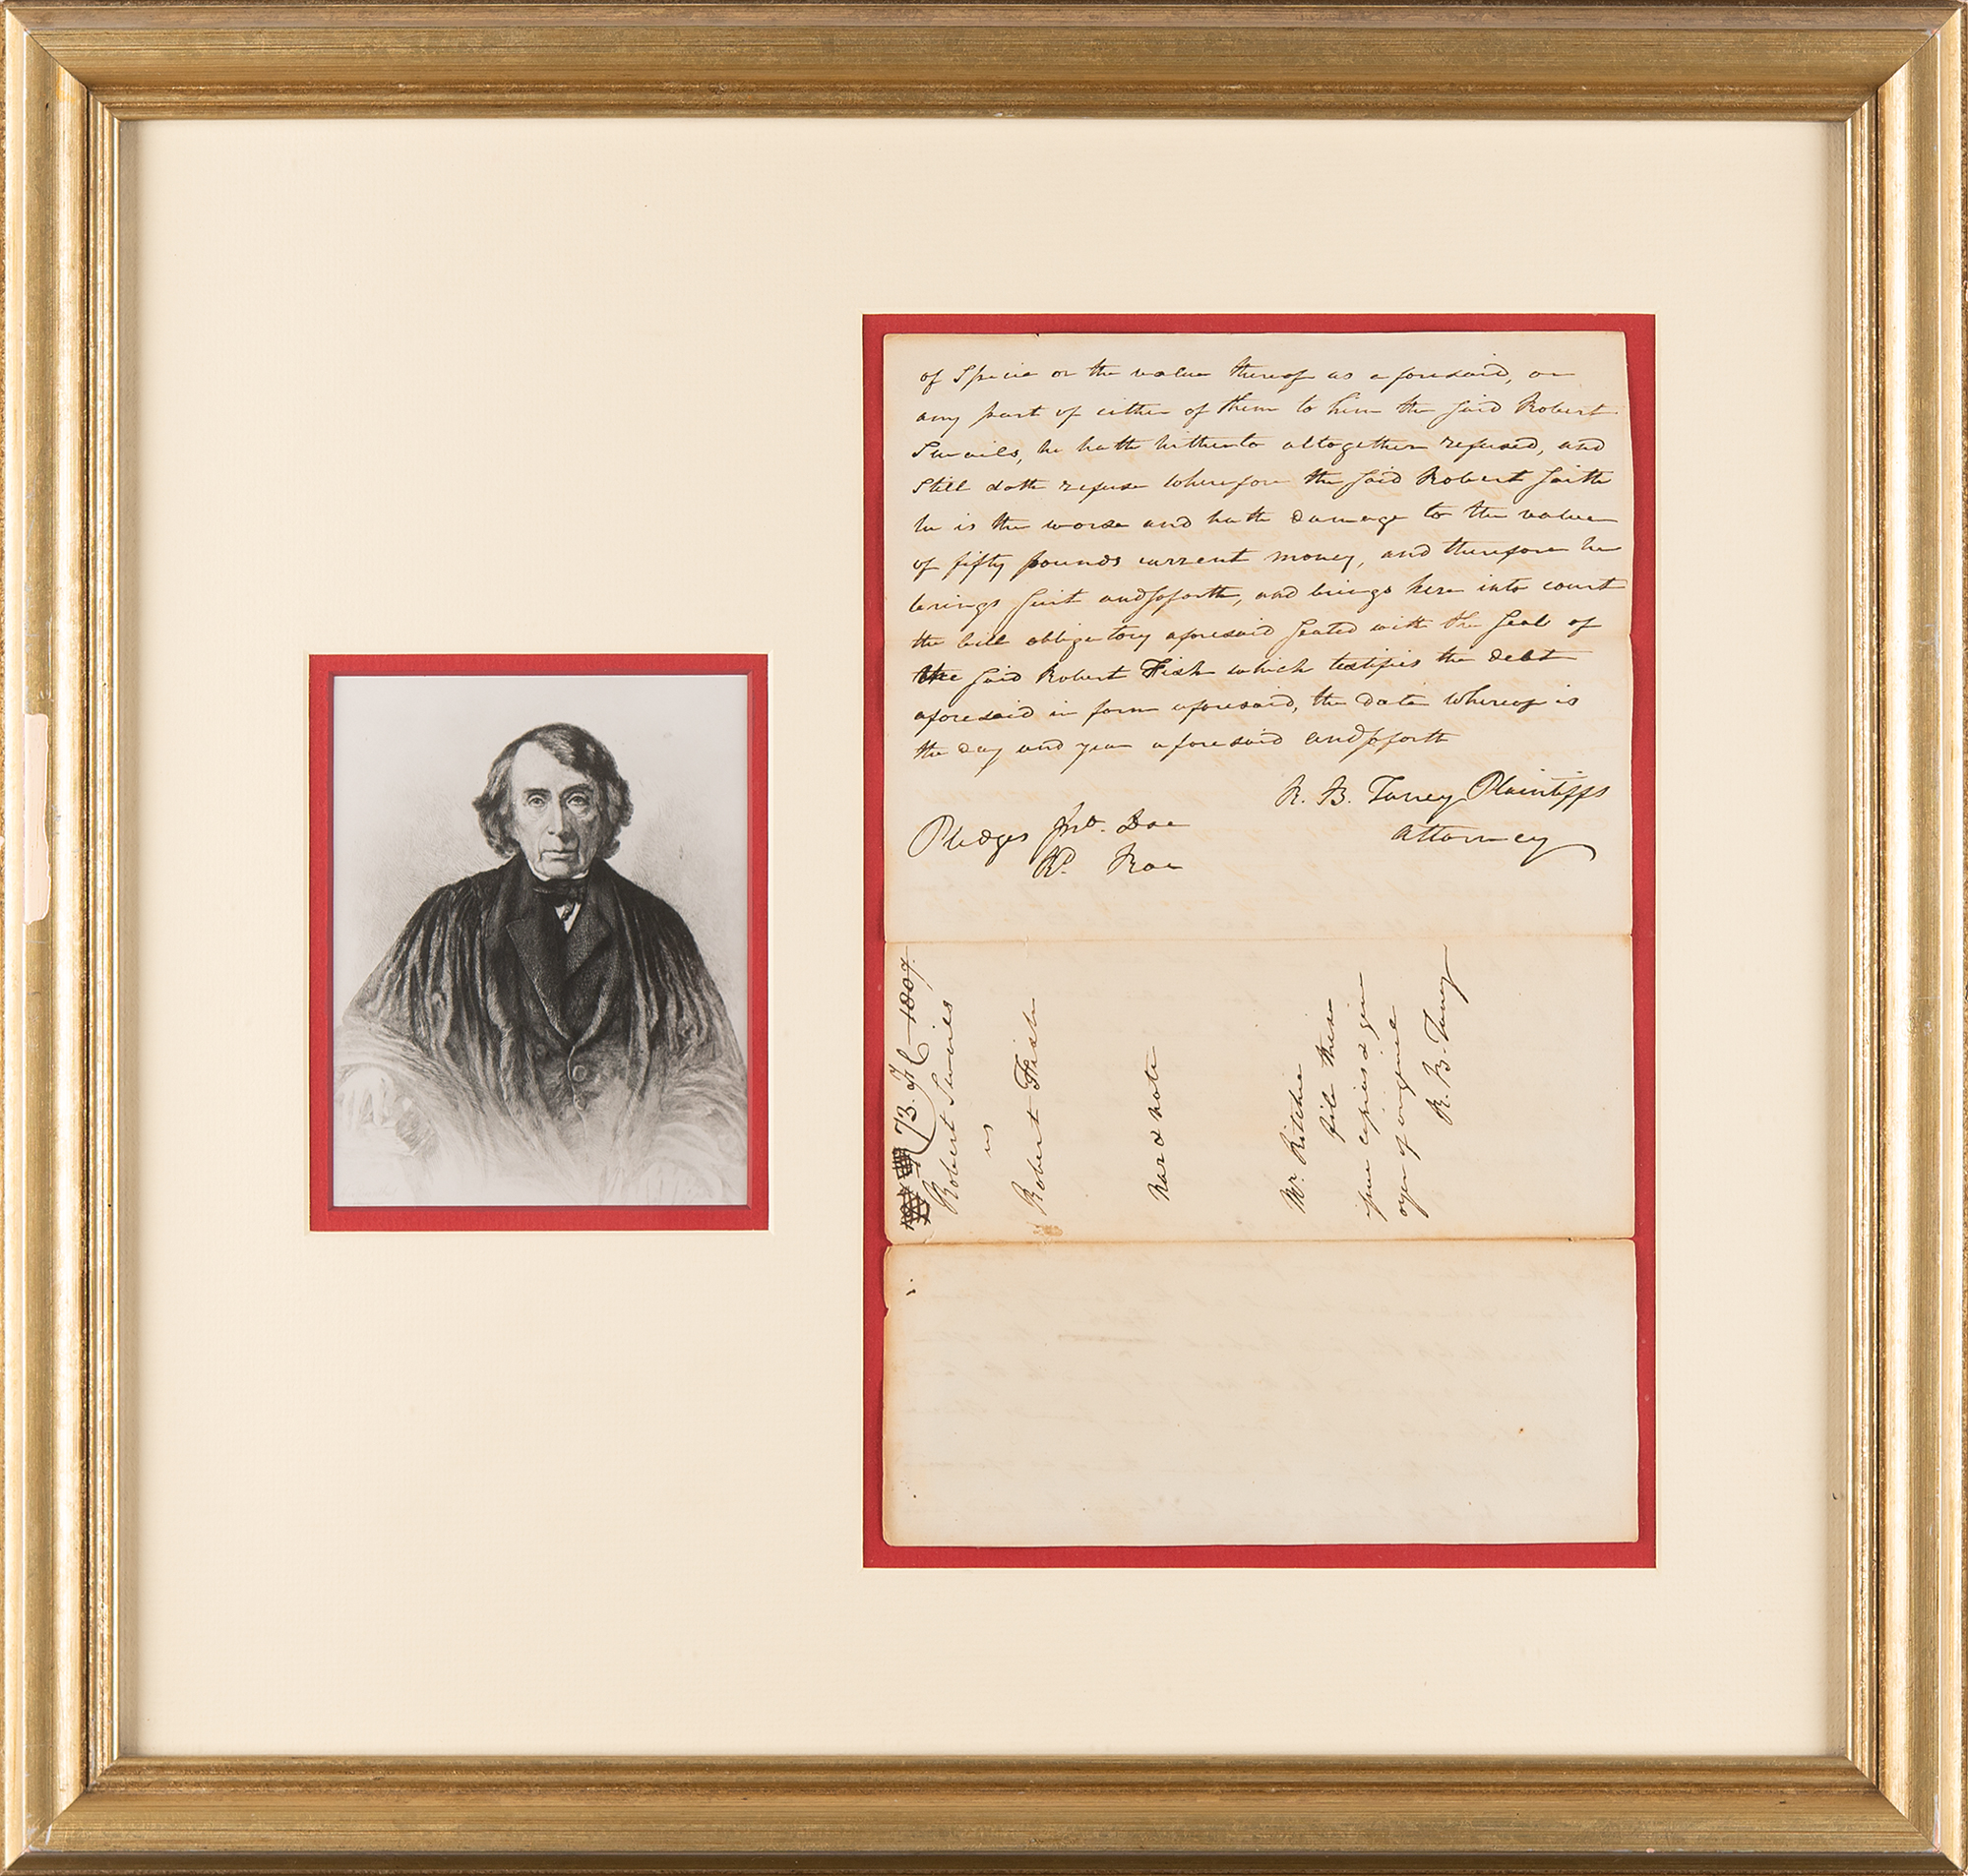 of Specie or the value thereof as aforesaid, or
any part of either of them to him the said Robert
Swailes, he hath hitherto altogether refused, and
Still doth refuse wherefore the said Robert saith
he is the worse and hath damage to the value
of fifty pounds current money, and therefore he
brings suit andsoforth, and brings here into court
the bill obligatory aforesaid Sealed with the Seal of
the said Robert Fish which testifies the debt
aforesaid in form aforesaid, the date whereof is
the day and year aforesaid andsoforth
R. B. Taney Plaintiffs
Attorney
Pledges Jno. Doe
Rd. Roe
73. 1807.
Robert Swailes
vs
Robert Fish
Nar & note
Mr. Ritchie
file these
give copies & give
oyer of original
R. B. Taney